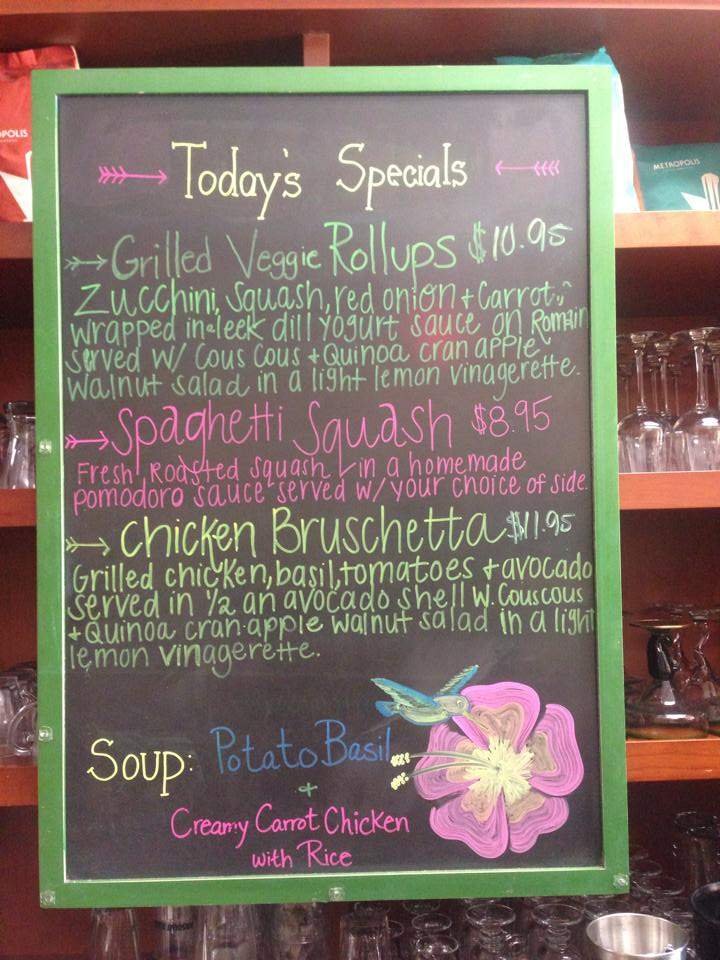 Today's Specials
Grilled Veggie Rollups $10.95
Zucchini, Squash, red onion + Carrot,
wrapped in a leek dill yogurt sauce on Romain
served w/ Cous Cous + Quinoa cran apple
walnut salad in a light lemon vinagerette.
Spaghetti Squash $8.95
Fresh Roasted squash in a homemade
pomodoro sauce served w/ your choice of side.
Chicken Bruschetta $11.95
Grilled chicken, basil, tomatoes + avocado
served in 1/2 an avocado shell w. Couscous
+ Quinoa cran-apple walnut salad in a light
lemon vinagerette.
Soup: Potato Basil
+
Creamy Carrot Chicken
with Rice
METROPOLIS